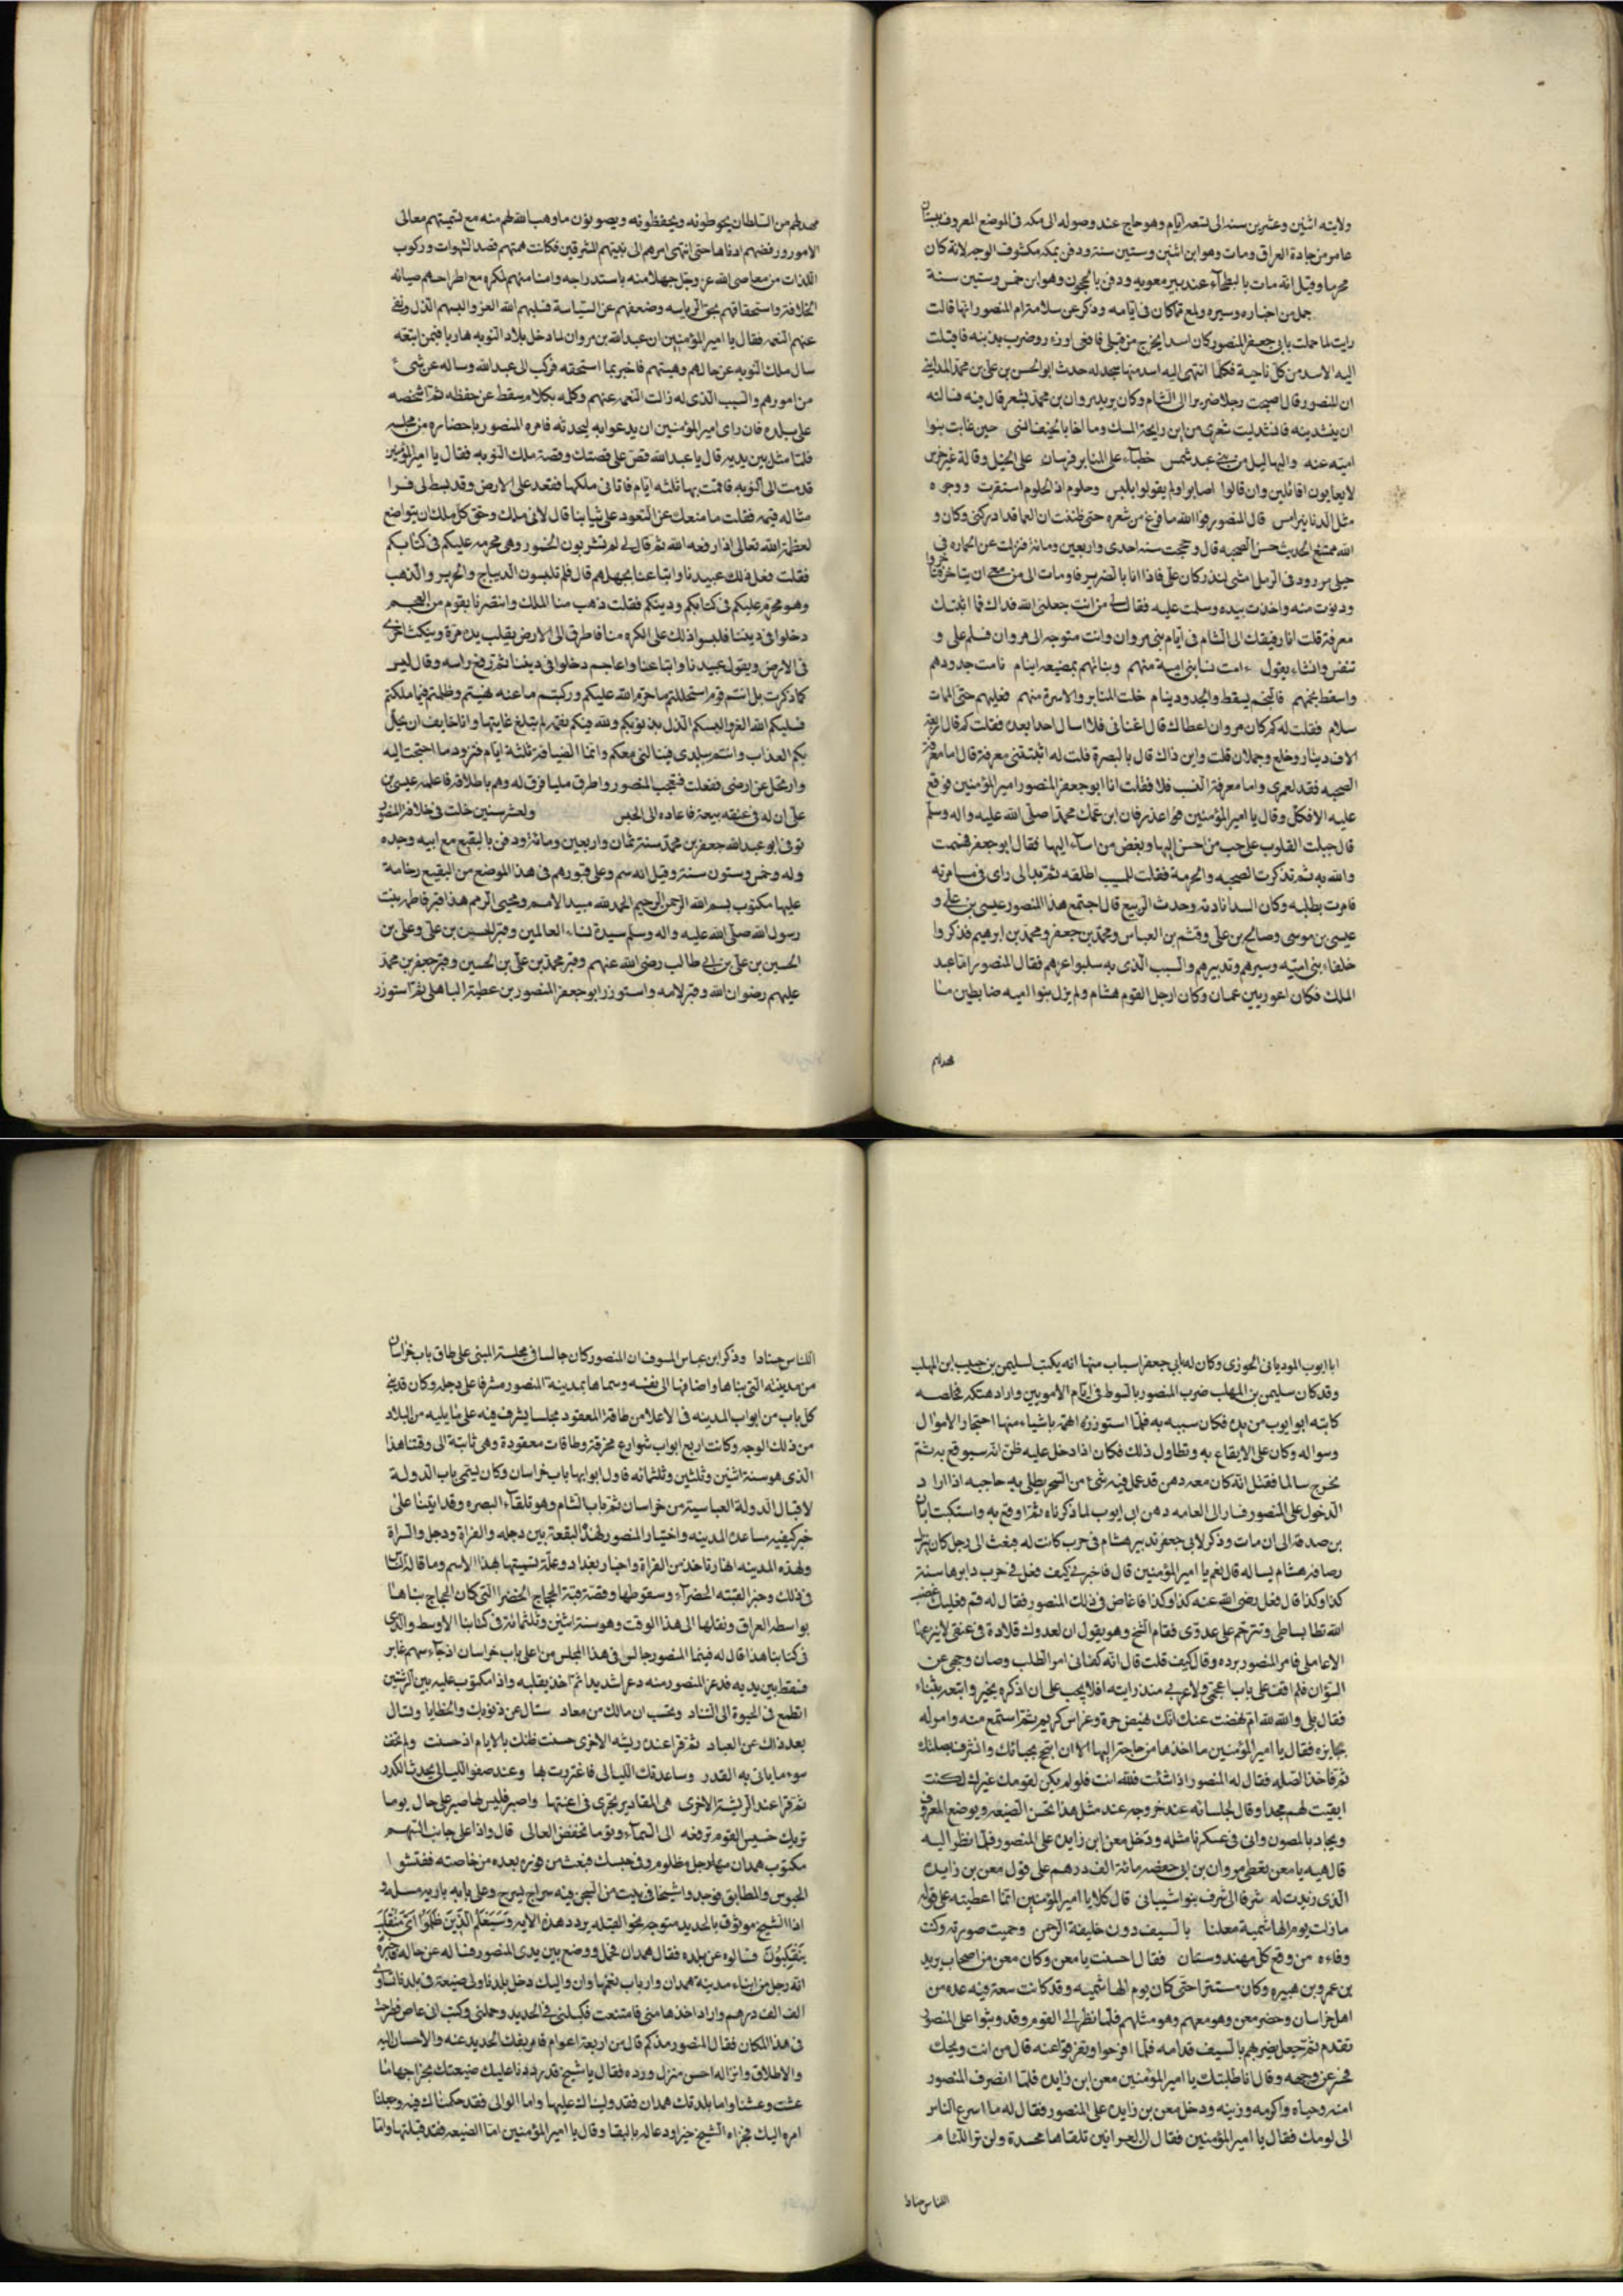 ولايته اثنين وعشرين سنه الى تسعه ايام وهو حاج عند وصوله الى مكه فى الموضع المعروف ببستان
عامر من جادة العراق ومات وهو ابن اثنين وستين سنة ودفن بمكه مكشوف الوجه لانه كان
محرما وقيل انه مات بالبطحآء عند بير معويه ودفن بالحجون وهو ابن خمس وستين سنة
جمل من اخباره وسيره ولمع مما كان فى ايامه وذكر عن سلامة ام المنصور انها قالت
رايت لما حملت بابى جعفر المنصور كان اسدا يخرج من قبلى فاقعى وزءر وضرب بذنبه فاقبلت
اليه الاسد من كل ناحية فكلما انتهى اليه اسد منها سجد له حدث ابو الحسن بن على بن محمد المداينى
ان المنصور قال صحبت رجلا ضريرا الى الشام وكان يريد مروان بن محمد بشعر قال فيه فسالته
ان ينشدينه فانشد ليت شعرى من اين رايحة المسك وما اخا بالخيف انسى حين غابت بنوا
اميته عنه والبهاليل من بنى عبد شمس خطبآء على المنابر فرسان على الخيل وقالة غير خرس
لا يعابون اقائلين وان قالوا اصابوا ولم يقولوا بلبس وحلوم اذ الحلوم استقرت ووجوه
مثل الدنانير امس قال المنصور فوالله ما فرغ من شعره حتى ظننت ان العما قد ادركنى وكان و
الله ممتع الحديث حسن الصحبه قال وحججت سنه احدى واربعين ومائة فنزلت عن الحماره فى
جبلى زرود فى الرمل امشى لنذر كان على فاذا انا بالضرير فاومات الى من معى ان يتاخر فتاخروا
ودنوت منه واخذت بيده وسلمت عليه فقال لى من انت جعلنى الله فداك فما اثبتك
معرفة قلت انا رفيقك الى الشام فى ايام بنى مروان وانت متوجه الى مروان فسلم على و
تنفس وانشاء يقول ءامت نسا بنى امية منهم وبناتهم بمضيعه ايتام نامت جدودهم
واسقط نجمهم فالنجم يسقط والجدود ينام خلت المنابر والاسرة منهم فعليهم حتى الممات
سلام فقلت له كم كان مروان اعطاك قال اغنانى فلا اسال احدا بعده فقلت كم قال اربعة
الاف دينار وخلع وجملان قلت واين ذاك قال بالبصرة قلت له اثبتنى معرفة قال اما معرفة
الصحبه فقد لعمرى واما معرفة النسب فلا فقلت انا ابو جعفر المنصور امير المؤمنين فوقع
عليه الافكل وقال يا امير المؤمنين اعذر فان ابن عمك محمدا صلى الله عليه واله وسلم
قال جبلت القلوب على حب من احسن اليها وبغض من اسآء اليها فقال ابو جعفر فهممت
والله به ثم تذكرت الصحبه والحرمة فقلت للمسيب اطلقه ثم بدا لى راى فى مسامرته
فامرت بطلبه وكان البيدا بادته وحدث الربيع قال اجتمع هذا المنصور عيسى بن على و
عيسى بن موسى وصالح بن على وقثم بن العباس ومحمد بن جعفر ومحمد بن ابرهيم فذكروا
خلفاء بنى اميه وسيرهم وتدبيرهم والسبب الذى به سلبوا عزهم فقال المنصور اما عبد
الملك فكان اعور بين عميان وكان ارجل القوم هشام ولم يزل بنوا اميه ضابطين منا
مهد لهم
مهد لهم من السلطان يحوطونه ويحفظونه ويصونون ما وهب الله لهم منه مع تتميتهم معالى
الامور ورفضهم ادناها حتى انتهى امرهم الى بنيهم المشرقين فكانت همتهم قصد الشهوات وركوب
اللذات من معاصى الله عز وجل جهلا منه باستدراجه وامنا منهم لمكره مع اطراحهم صيانة
الخلافة واستحقاقهم بحق الرياسه وضعفهم عن السياسة فسلبهم الله العز والبسهم الذل ونفى
عنهم النعمه فقال يا امير المؤمنين ان عبد الله بن مروان لما دخل بلاد النوبه هاربا فيمن اتبعه
سال ملك النوبه عن حالهم وهيئتهم فاخبر بما استحقه فركب الى عبد الله وساله عن شىء
من امورهم والسبب الذى له زالت النعمه عنهم وكلمه بكلام سقط عن حفظه ثم اشخصه
على بلده فان راى امير المؤمنين ان يدعوا به ليحدثه فامره المنصور باحضاره من مجلسه
فلما مثل بين يديه قال يا عبد الله قص على قصتك وقصة ملك النوبه فقال يا امير المؤمنين
قدمت الى النوبه فاقمت بها ثلثه ايام فاتانى ملكها فقعد على الارض وقد بسط لى فرا
مثاله قيمه فقلت ما منعك عن القعود على ثيابنا قال لانى ملك وحق كل ملك ان يتواضع
لعظمة الله تعالى اذا رفعه الله ثم قال لى لم تشربون الخمور وهى محرمه عليكم فى كتابكم
فقلت فعل ذلك عبيدنا واتباعنا بجهلهم قال فلم تلبسون الديباج والحرير والذهب
وهو محرم عليكم فى كتابكم ودينكم فقلت ذهب منا الملك وانتصرنا بقوم من العجم
دخلوا فى ديننا فلبسوا ذلك على الكره منا فاطرق الى الارض يقلب يده مرة وينكث اخرى
فى الارض ويقول عبيدنا واتباعنا واعاجم دخلوا فى ديننا ثم رفع راسه وقال ليس
كما ذكرت بل انتم قوم استحللتم ما حرم الله عليكم وركبتم ما عنه نهيتم وظلمتم فيما ملكتم
فسلبكم الله العز والبسكم الذل بذنوبكم ولله فيكم نقمة لم تبلغ غايتها وانا خايف ان يحل
بكم العذاب وانتم ببلدى فينالنى معكم وانما الضيافة ثلثة ايام فتزود ما احتجت اليه
وارتحل عن ارضى ففعلت فتعجب المنصور واطرق مليا فرق له وهم باطلاقه فاعلمه عيسى بن
على ان له فى عنقه بيعة فاعاده الى الحبس ولعشر سنين خلت فى خلافة المنصور
توفى ابو عبد الله جعفر بن محمد سنة ثمان واربعين ومائة ودفن بالبقيع مع ابيه وجده
وله وخمس وستون سنة وقيل انه سم وعلى قبورهم فى هذا الموضع من البقيع رخامة
عليها مكتوب بسم الله الرحمن الرحيم الحمد لله مبيد الامم ومحيى الرمم هذا قبر فاطمه بنت
رسول الله صلى الله عليه واله وسلم سيدة نساء العالمين وقبر الحسين بن على وعلى بن
الحسين بن على بن ابى طالب رضى الله عنهم وقبر محمد بن على بن الحسين وقبر جعفر بن محمد
عليهم رضوان الله وقبر لامه واستوزر ابو جعفر المنصور بن عطية الباهلى ثم استوزر
ابا ايوب الموريانى الخوزى وكان له بابى جعفر اسباب منها انه يكتب لسليمن بن حبيب ابن المهلب
وقد كان سليمن بن المهلب ضرب المنصور بالسوط فى ايام الامويين واراد هتكه فخلصه
كاتبه ابو ايوب من يده فكان سببه به فلما استوزره اتهم باشياء منها احتجاز الاموال
وسواله وكان على الايقاع به وتطاول ذلك فكان اذا دخل عليه ظن انه سيوقع به ثم
يخرج سالما فقيل انه كان معه دهن قد عمل فيه شئ من السحر يطلى به حاجبه اذا اراد
الدخول على المنصور فسار الى العامه دهن ابى ايوب لما ذكرناه ثم اوقع به واستكتب ابان
بن صدقة الى ان مات وذكر لابى جعفر تدبير هشام فى حرب كانت له فبعث الى رجل كان ينزل
رصافة هشام يساله قال نعم يا امير المؤمنين قال فاخبرنى كيف فعل فى حرب دابرها سنة
كذا وكذا قال فعل رضى الله عنه كذا وكذا فاغاض فى ذلك المنصور فقال له قم فعليك غضب
الله تطا بساطى وتترحم على عدوى فقام الشيخ وهو يقول ان لعدوك قلادة فى عنقى لا ينزعها
الا غاسلى فامر المنصور برده وقال كيف قلت قال انه كفانى امر الطلب وصان وجهى عن
السؤال فلم اقف على باب اعجمى ولا عربى منذ رايته افلا يجب على ان اذكره بخير واتبعه بثناء
فقال بلى والله لله ام نهضت عنك انك نهيض حرة وغراس كريم ثم استمع منه وامر له
بجايزه فقال يا امير المؤمنين ما اخذها من حاجة اليها الا ان ابتهج بحبائك واتشرف بصلتك
ثم فاخذ الصله فقال له المنصور اذا شئت فلله انت فلو لم يكن لقومك غيرك لكنت
ابقيت لهم مجدا وقال لجلسائه عند خروجه عند مثل هذا تحسن الصنيعه ويوضع المعروف
ويجاد بالمصون وانى فى عسكرنا مثله ودخل معن ابن زايده على المنصور فلما نظر اليه
قال هيه يا معن تعطى مروان بن ابى حفصه مائة الف درهم على قول معن بن زايده
الذى زيدت له شرفا الى شرف بنوا شيبانى قال كلا يا امير المؤمنين انما اعطيته على قوله
ما زلت يوم الهاشمية معلنا بالسيف دون خليفة الرحمن وحميت صورته وكنت
وفاءه من وقع كل مهند وسنان فقال احسنت يا معن وكان معن من اصحاب يزيد
بن عمرو بن هبيره وكان مستترا حتى كان يوم الهاشميه وقد كانت سعة فيه عده من
اهل خراسان وحضر معن وهو معهم وهو مثلهم فلما نظر الى القوم وقد وثبوا على المنصور
تقدم ثم جعل يضربهم بالسيف قدامه فلما افرجوا وتفرقوا عنه قال من انت ويحك
فحسر عن وجهه وقال انا طلبتك يا امير المؤمنين معن ابن زايده فلما انصرف المنصور
امنه وحياه واكرمه وزينه ودخل معن بن زايده على المنصور فقال له ما اسرع الناس
الى لومك فقال يا امير المؤمنين فقال ان العرانين تلقاها محسدة ولن ترا للئام
للناس حسادا
للناس حسادا وذكر ابن عباس المسوف ان المنصور كان جالسا فى مجلسة المبنى على طاق باب خراسان
من مدينته التى بناها واضافها الى نفسه وسماها بمدينة المنصور مشرفا على دجله وكان قد بنى
كل باب من ابواب المدينه فى الاعلا من طاقة المعقود مجلسا يشرف فيه على ما يليه من البلاد
من ذلك الوجه وكانت اربع ابواب شوارع محرقة وطاقات معقودة وهى ثابتة الى وقتنا هذا
الذى هو سنة اثنين وثلثين وثلثمائه فاول ابوابها باب خراسان وكان يسمى باب الدولة
لاقبال الدولة العباسية من خراسان ثم باب الشام وهو تلقآء البصره وقد اتينا على
خبر كيفيه ساعدة المدينه واختيار المنصور لهذه البقعة بين دجله والفراة ودجل والسراة
وهذه المدينه انهار تاخذ من الفراة واخبار بغداد وعلة تسميتها بهذا الاسم وما قال الناس
فى ذلك وخبر القبته الخضرآء وسقوطها وقصة قبة الحجاج الخضرا التى كان الحجاج بناها
بواسطه العراق ونقلها الى هذا الوقت وهو سنة اثنين وثلثمائة فى كتابنا الاوسط والذى
فى كتابنا هذا قال له فينما المنصور جالس فى هذا المجلس من اعلى باب خراسان اذ جآء سهم غابر
فسقط بين يديه فدعر المنصور منه دعرا شديدا ثم اخذ يقلبه واذا مكتوب عليه بين الرشتين
اتطمع فى الحيوة الى التناد وتحسب ان مالك من معاد ستال عن ذنوبك والخطايا وتسال
بعد ذاك عن العباد ثم قرا عند ريشه الاخرى حسنت ظنك بالايام اذ حسنت ولم تخف
سوء ما ياتى به القدر وساعدتك الليالى فاغتررت بها وعند صفو الليالى يحدث الكدر
ثم قرا عند الريشة الاخرى هى المقادير تجرى فى اعنتها واصبر فليس لها صبر على حال يوما
تريك خسيس القوم ترفعه الى السمآء ويوما تخفض العالى قال واذا على جانب السهم
مكتوب همدان منها رجل مظلوم وفى حبسك فبعث من فوره بعده من خاصته ففتشوا
الحبوس والمطابق فوجدوا شيخا فى بيت من السجن فيه سراج يسرج وعلى بابه باريه مسبله و
اذا الشيخ موثوق بالحديد متوجه نحو القبله يردد هذه الايه وَسَيَعْلَمُ الَّذِينَ ظَلَمُوا اَىَّ مُنْقَلَبٍ
يَنْقَلِبُونَ فسالوه عن بلده فقال همدان فحمل ووضع بين يدى المنصور فساله عن حاله فاخبره
انه رجل من ابناء مدينة همدان وارباب نعمها وان واليك دخل بلدنا ولى ضيعة فى بلدنا تساوى
الف الف درهم واراد اخذها منى فامتنعت فكبلنى فى الحديد وحملنى وكتب انى عاص فطرحت
فى هذا المكان فقال المنصور مذ كم قال من اربعة اعوام فامر بفك الحديد عنه والاحسان اليه
والاطلاق وانزاله احسن منزل ورده فقال يا شيخ قد رددنا عليك ضيعتك بخراجها ما
عشت وعشنا واما بلدتك همدان فقد وليناك عليها واما الوالى فقد حكمناك فيه وجعلنا
امره اليك فجزاه الشيخ خيرا ودعا له بالبقا وقال يا امير المؤمنين اما الضيعه فقد قبلتها واما